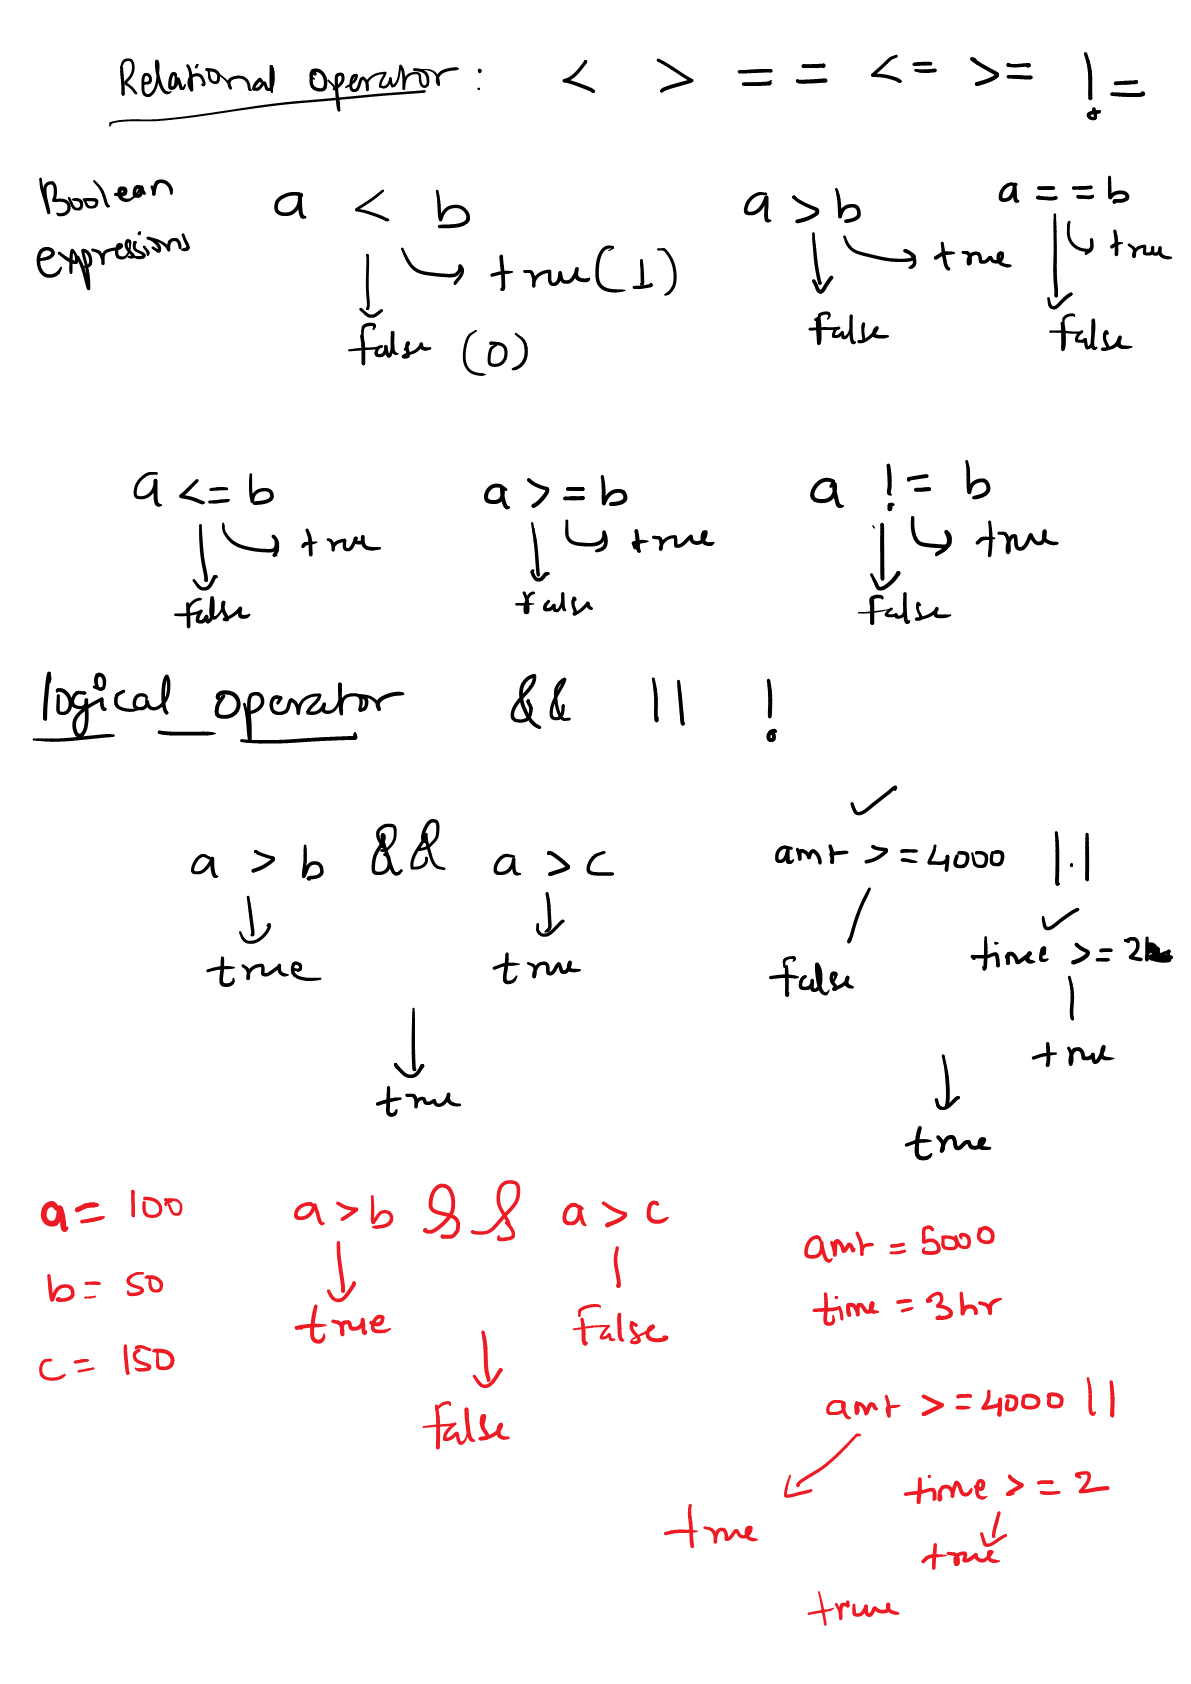 Relational operator : < > == <= >= !=
Boolean expressions
a < b
true (1)
false (0)
a > b
true
false
a == b
true
false
a <= b
true
false
a >= b
true
false
a != b
true
false
logical operator && || !
a > b && a > c
true true
true
amt >= 4000 ||
time >= 2
false
true
true
a = 100
b = 50
c = 150
a > b && a > c
true False
false
amt = 5000
time = 3hr
amt >= 4000 ||
time >= 2
true
true
true